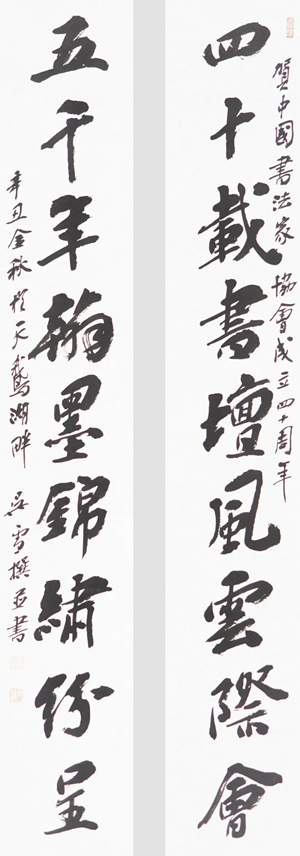 賀中國書法家協會成立四十周年
四十載書壇風雲際會
五千年翰墨錦繡紛呈
辛丑金秋於天鵝湖畔 吴雪撰並書